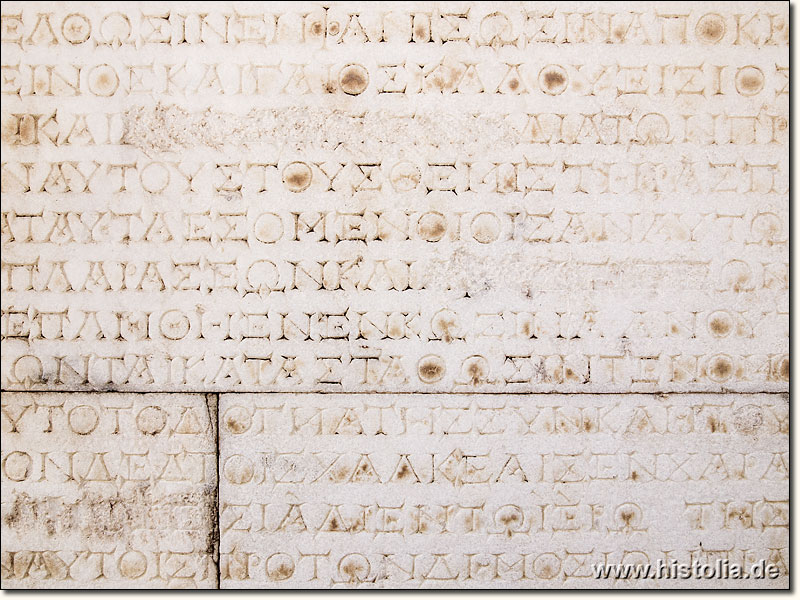 ΕΛΘΩΣΙΝΕΜΦΑΝΙΣΩΣΙΝΑΠΟΚΡ
ΕΙΝΟΣΚΑΙΓΑΙΟΣΚΑΛΟΥΙΣΙΟΣ
ΚΑΙ ΔΙΑΤΩΝΠΡ
ΝΑΥΤΟΥΣΤΟΥΣΘΕΜΙΣΤΗΡΑΣΠ
ΑΤΑΥΤΑΕΣΟΜΕΝΟΙΟΙΣΑΝΑΥΤΩ
ΠΛΑΡΑΣΕΩΝΚΑΙ ΩΝ
ΕΠΑΝΘΗΕΝΕΝΚΩΣΙΝΑΝΟΥΤ
ΩΝΤΑΙΚΑΤΑΣΤΑΘΩΣΙΝΤΕΝΟΜΟ
ΥΤΟΤΟΔΟΓΜΑΤΗΣΣΥΝΚΛΗΤΟΥ
ΟΝΔΕΔΤΟΙΣΧΑΛΚΕΑΙΣΕΝΧΑΡΑ
ΣΙΑΔΙΕΝΤΩΙΕΡΩ ΤΗΣ
ΝΑΥΤΟΙΣΠΡΟΤΩΝΔΗΜΟΣΙΩΝΠΡΑ
www.histolia.de